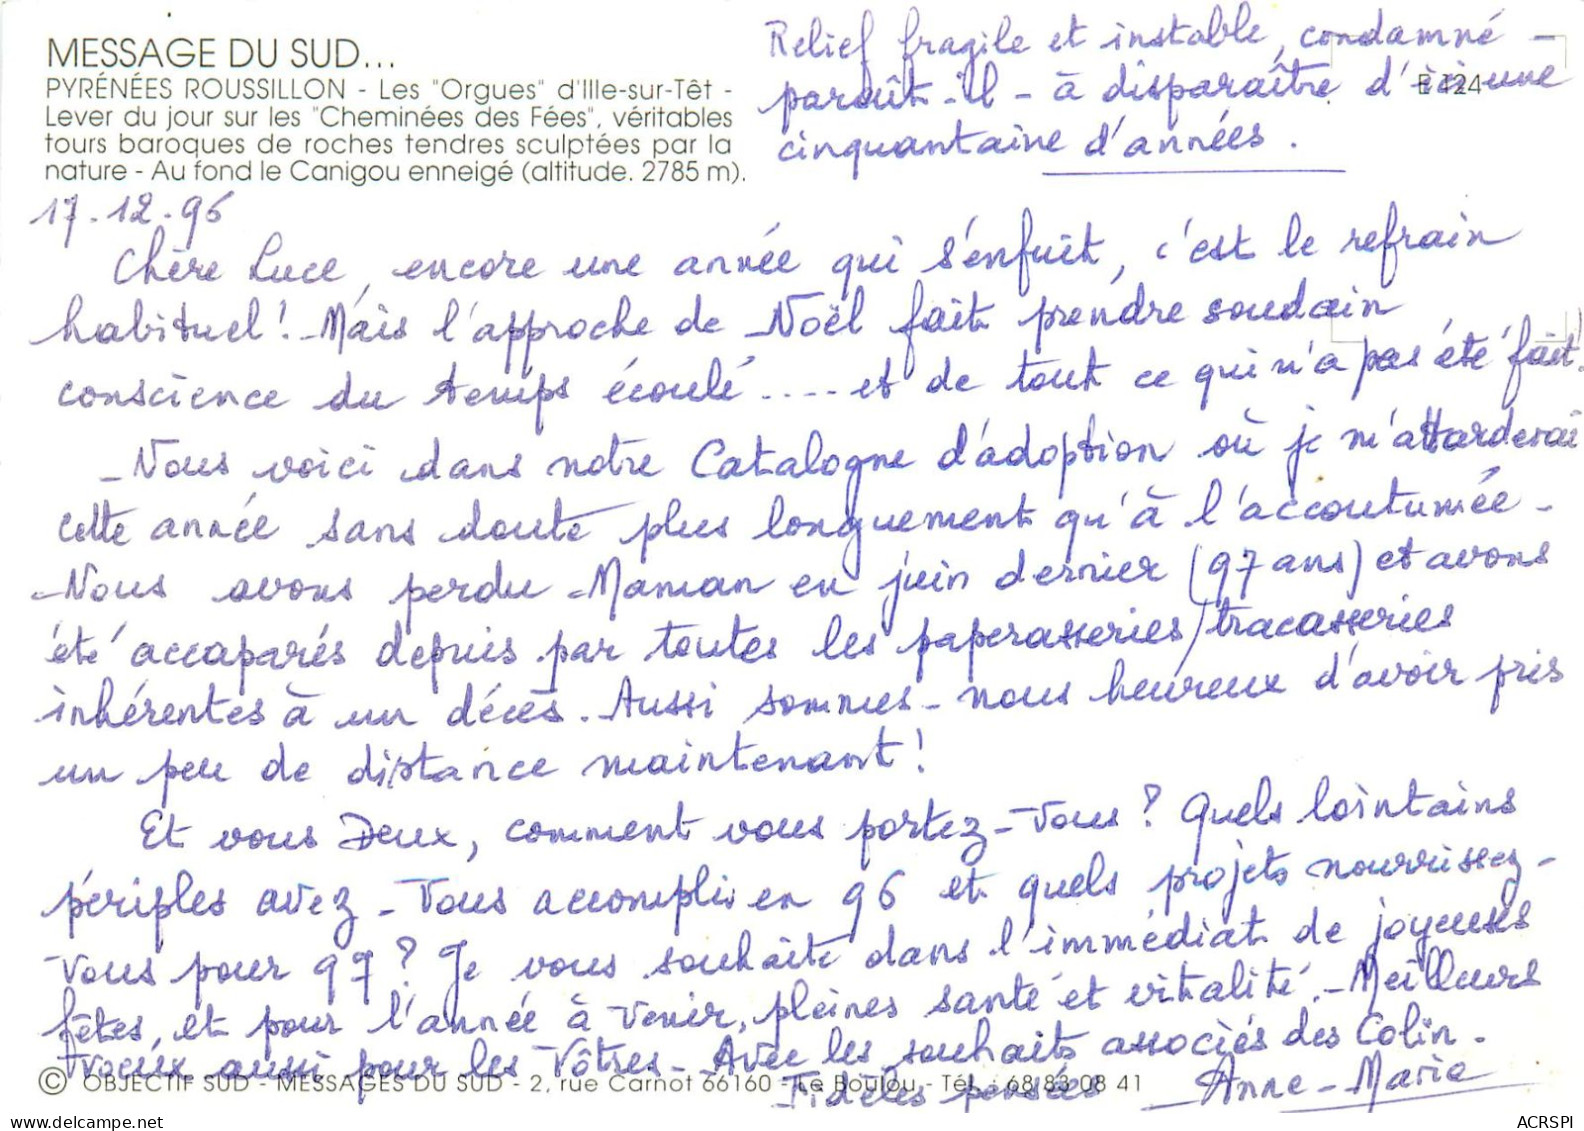 MESSAGE DU SUD...
PYRÉNÉES ROUSSILLON - Les "Orgues" d'Ille-sur-Têt -
Lever du jour sur les "Cheminées des Fées", véritables
tours baroques de roches tendres sculptées par la
nature - Au fond le Canigou enneigé (altitude. 2785 m).
Relief fragile et instable, condamné -
paraît-il - à disparaître d'ici une
cinquantaine d'années.
E 124
17.12.96
Chère Luce, encore une année qui s'enfuit, c'est le refrain
habituel! Mais l'approche de Noël fait prendre soudain
conscience du temps écoulé .... et de tout ce qui n'a pas été fait.
Nous voici dans notre Catalogne d'adoption où je m'attarderai
cette année sans doute plus longuement qu'à l'accoutumée.
Nous avons perdu Maman en juin dernier (97 ans) et avons
été accaparés depuis par toutes les paperasseries/tracasseries
inhérentes à un décès. Aussi sommes-nous heureux d'avoir pris
un peu de distance maintenant!
Et vous Deux, comment vous portez-vous? Quels lointains
périples avez-vous accomplis en 96 et quels projets nourrissez-
vous pour 97? Je vous souhaite dans l'immédiat de joyeuses
fêtes, et pour l'année à venir, pleines santé et vitalité. Meilleurs
voeux aussi pour les Vôtres. Avec les souhaits associés des Colin.
Fidèles pensées Anne-Marie
© OBJECTIF SUD - MESSAGES DU SUD - 2, rue Carnot 66160 - Le Boulou - Tél. : 68 83 08 41
ACRSPI